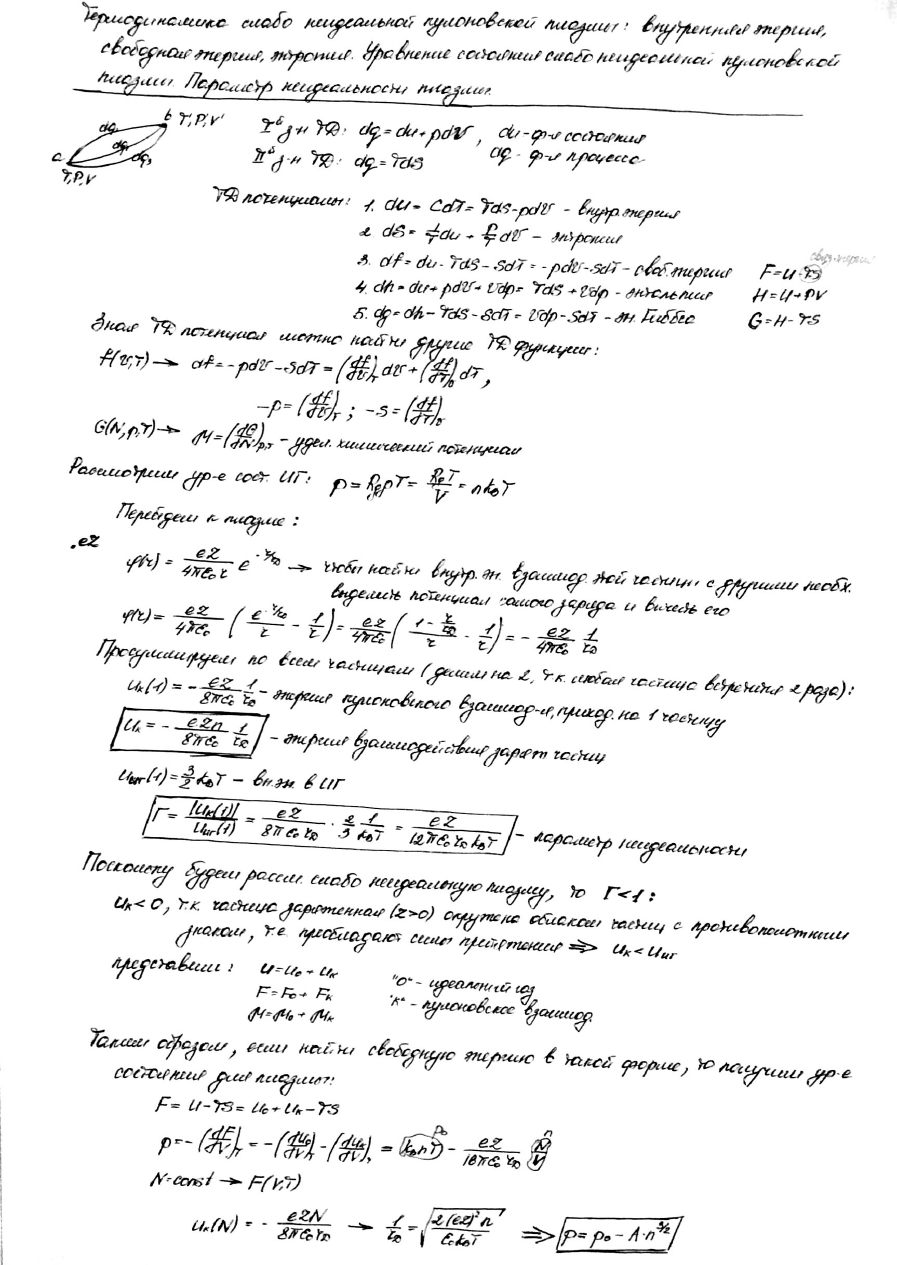 Термодинамика слабо неидеальной кулоновской плазмы: внутренняя энергия,
свободная энергия, энтропия. Уравнение состояния слабо неидеальной кулоновской
плазмы. Параметр неидеальности плазмы.
b T,P',V'
a
T,P,V
dq dq₁ dq₂
Iᵒᵉ з-н ТД: dq = du + pdV, du - ф-я состояния
IIᵒᵉ з-н ТД: dq = TdS dq - ф-я процесса
ТД потенциалы: 1. du = CdT = TdS - pdV - внутр. энергия
2. dS = 1/T du + P/T dV - энтропия
3. df = du - TdS - SdT = -pdV - SdT - своб. энергия F = U - TS
4. dh = du + pdV + Vdp = TdS + Vdp - энтальпия H = U + PV
5. dg = dh - TdS - SdT = Vdp - SdT - эн. Гиббса G = H - TS
Зная ТД потенциал можно найти другие ТД функции:
f(V,T) → df = -pdV - SdT = (df/dV)_T dV + (df/dT)_V dT,
-p = (df/dV)_T ; -S = (df/dT)_V
G(N,p,T) → μ = (dG/dN)_{p,T} - удел. химический потенциал
Рассмотрим ур-е сост. ИГ: p = R_{уд}ρT = R₀T/V = nk_бT
Перейдем к плазме:
.eZ
φ(r) = eZ/(4πε₀r) e^{-r/r_D} → чтобы найти внутр. эн. взаимод. этой частицы с другими необх.
выделить потенциал самого заряда и вычесть его
φ(r) = eZ/(4πε₀) (e^{-r/r_D}/r - 1/r) = eZ/(4πε₀) ((1 - r/r_D)/r - 1/r) = - eZ/(4πε₀) 1/r_D
Просуммируем по всем частицам (делим на 2, т.к. любая частица встретится 2 раза):
u_к(1) = - eZ/(8πε₀) 1/r_D - энергия кулоновского взаимод-я, приход. на 1 частицу
u_к = - eZn/(8πε₀) 1/r_D - энергия взаимодействия заряж. частиц
u_{иг}(1) = 3/2 k_бT - вн. эн. в ИГ
Γ = |u_к(1)|/u_{иг}(1) = eZ/(8πε₀r_D) · 2/3 1/(k_бT) = eZ/(12πε₀r_Dk_бT) - параметр неидеальности
Поскольку будем рассм. слабо неидеальную плазму, то Γ<1:
u_к<0, т.к. частица заряженная (z>0) окружена облаком частиц с противоположным
знаком, т.е. преобладают силы притяжения ⇒ u_к < u_{иг}
представим: u = u₀ + u_к "0" - идеальный газ
F = F₀ + F_к "к" - кулоновское взаимод.
μ = μ₀ + μ_к
Таким образом, если найти свободную энергию в такой форме, то получим ур-е
состояния для плазмы:
F = U - TS = U₀ + U_к - TS
p = -(dF/dV)_T = -(dU₀/dV)_T - (dU_к/dV)_T = k_бnT - eZ/(16πε₀r_D) N/V
p₀ n
N = const → F(V,T)
U_к(N) = - eZN/(8πε₀r_D) → 1/r_D = √(2(eZ)²n/(ε₀k_бT)) ⇒ p = p₀ - A·n^{3/2}